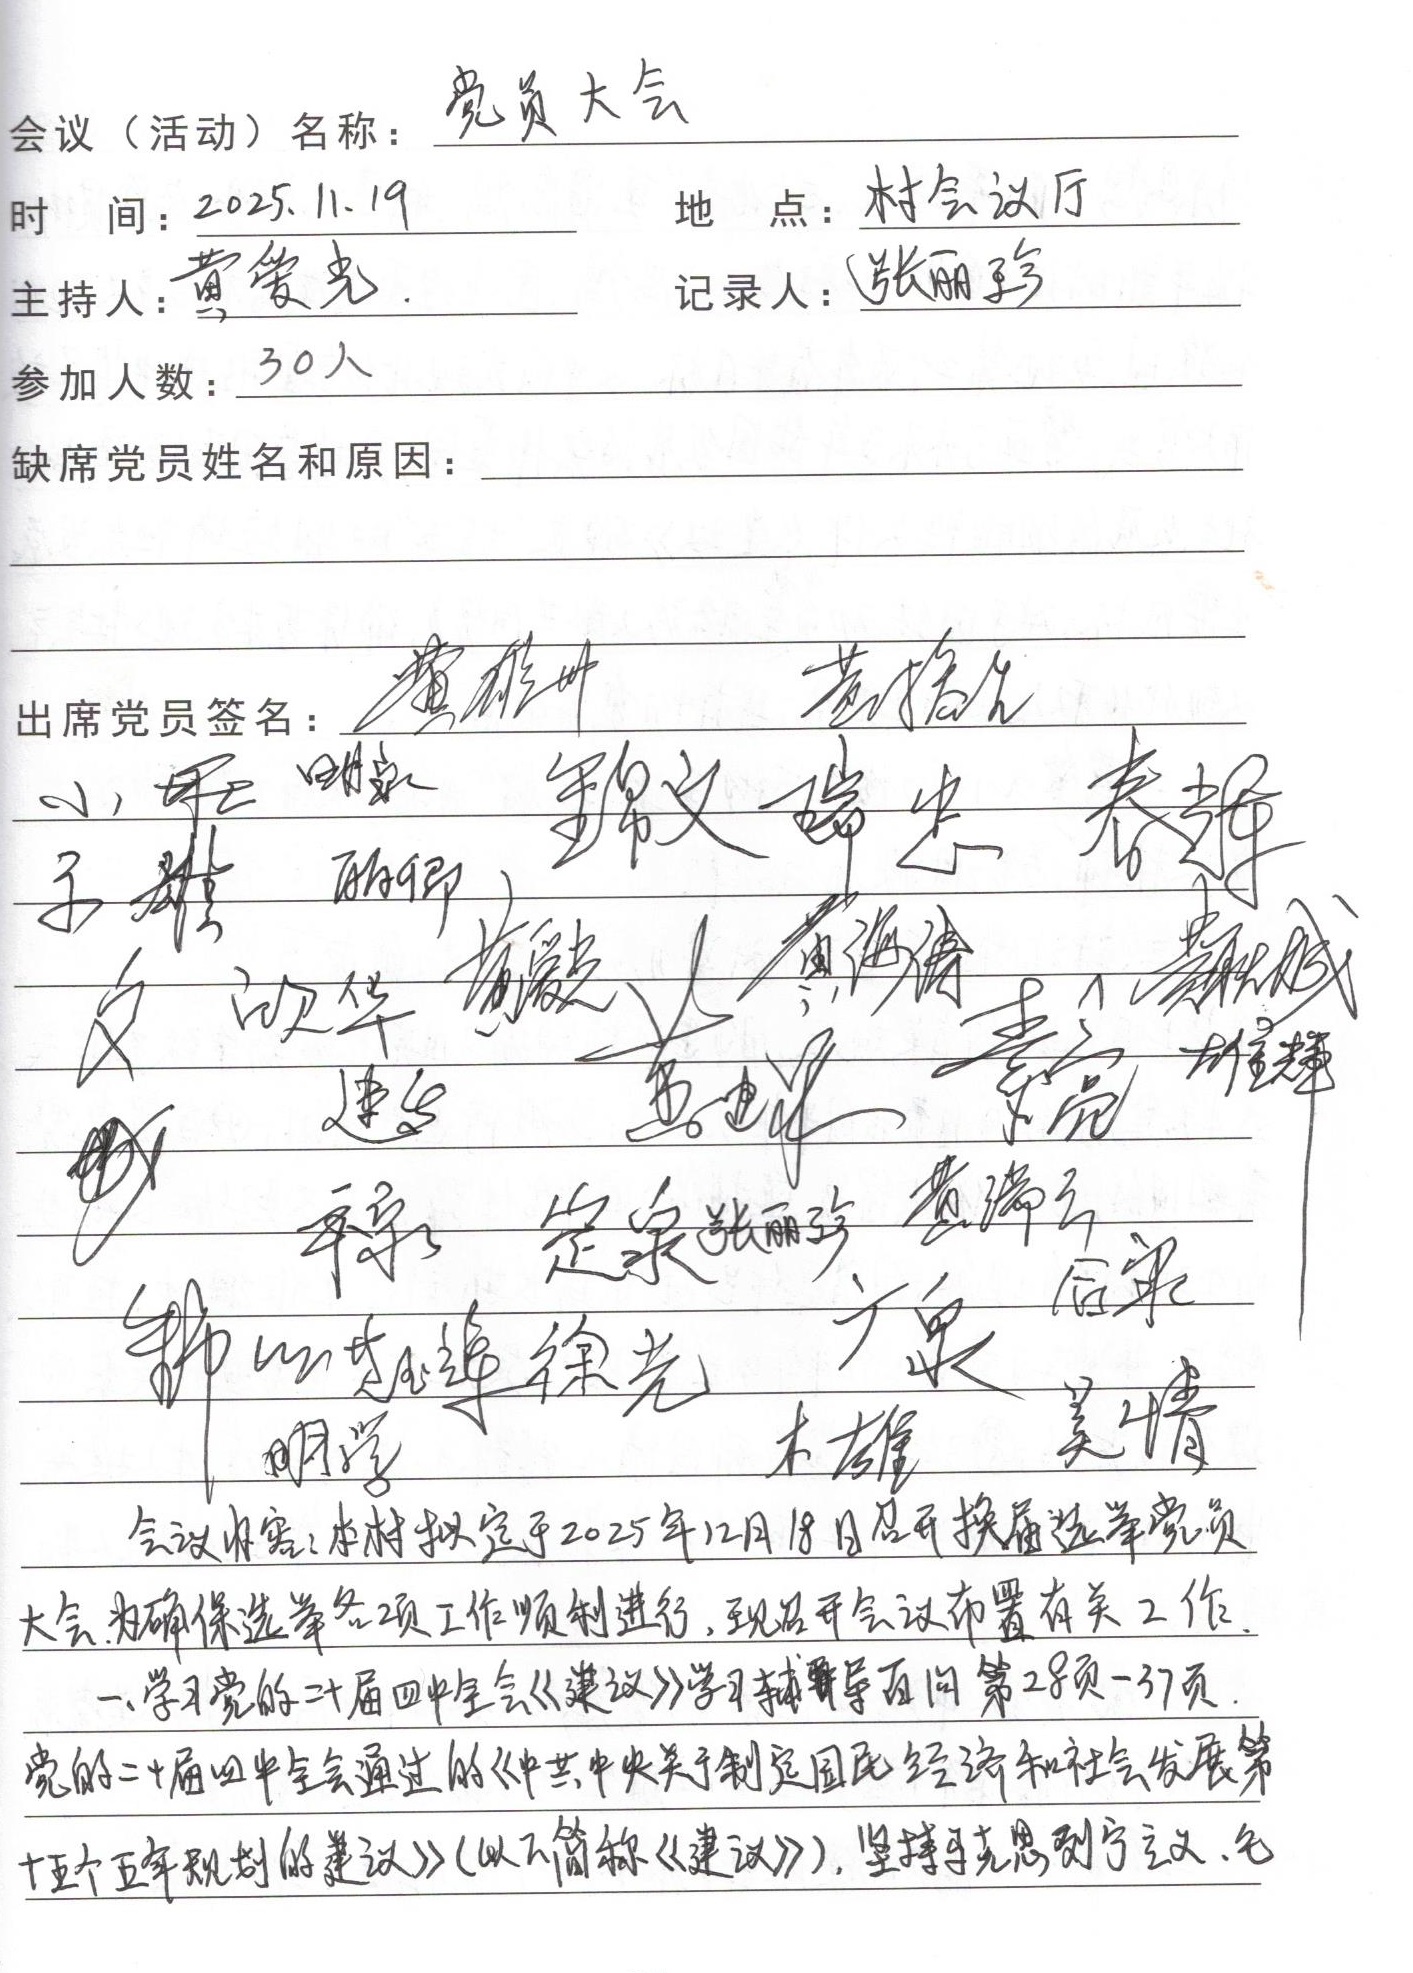 会议（活动）名称：党员大会
时 间：2025.11.19 地 点：村会议厅
主持人：黄爱光. 记录人：张丽珍
参加人数：30人
缺席党员姓名和原因：
出席党员签名：黄雄州
小军 明泉 锦文 瑞忠 春辉
子雄 丽卿
欢华 黄爱光 黄海涛
雄辉
建忠
定泉 张丽珍 黄瑞云
徐光 广泉
明学 木雄 美情
会议内容：本村拟定于2025年12月18日召开换届选举党员
大会、为确保选举各项工作顺利进行，现召开会议布置有关工作.
一、学习党的二十届四中全会《建议》学习辅导百问第28页—37页.
党的二十届四中全会通过的《中共中央关于制定国民经济和社会发展第
十五个五年规划的建议》（以下简称《建议》），坚持马克思列宁主义、毛